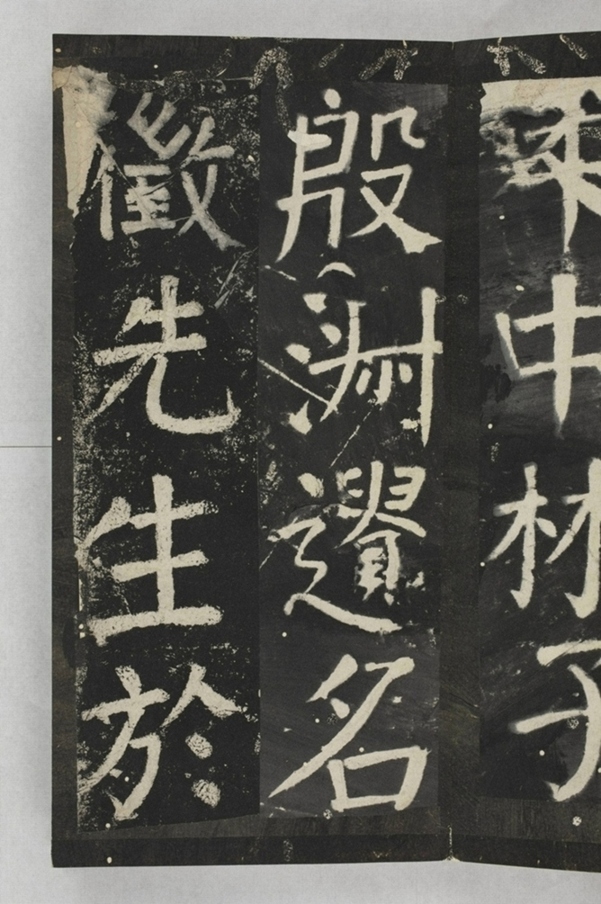 中林子
殷淵遺名
徵先生於